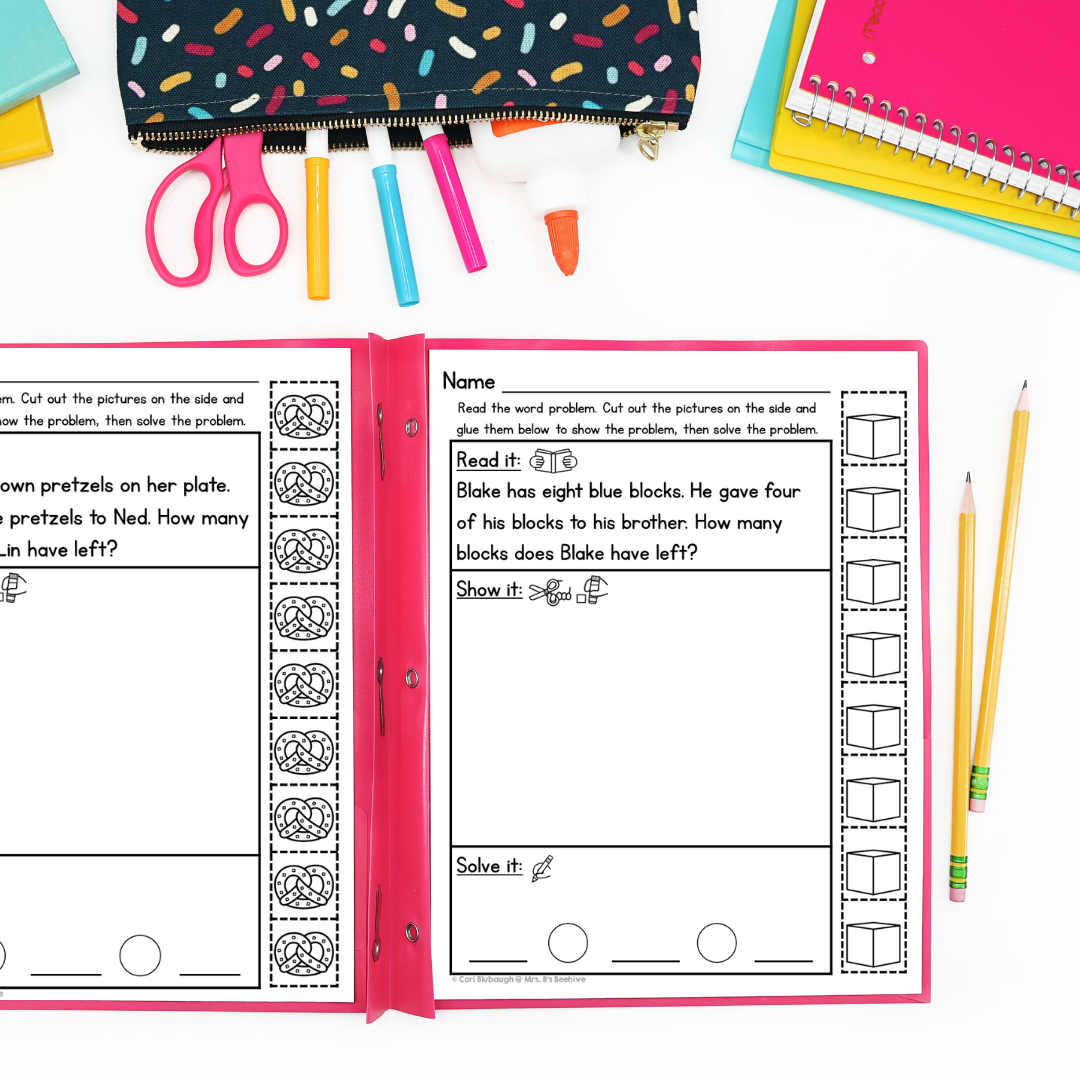 em. Cut out the pictures on the side and
how the problem, then solve the problem.
own pretzels on her plate.
e pretzels to Ned. How many
Lin have left?
Name
Read the word problem. Cut out the pictures on the side and
glue them below to show the problem, then solve the problem.
Read it:
Blake has eight blue blocks. He gave four
of his blocks to his brother. How many
blocks does Blake have left?
Show it:
Solve it:
© Cori Blubaugh @ Mrs. B's Beehive